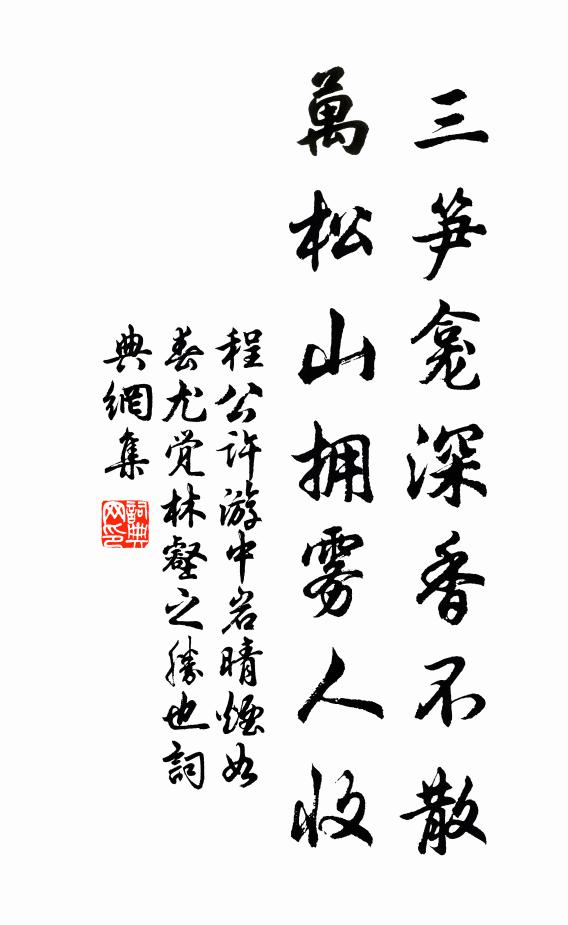 三笋龛深香不散
萬松山拥雾人收
程公许游中岩晴煙如
春尤觉林壑之勝也詞
典網集
詞典网印